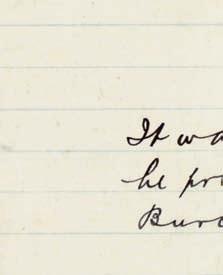 It wa
he pr
Bur